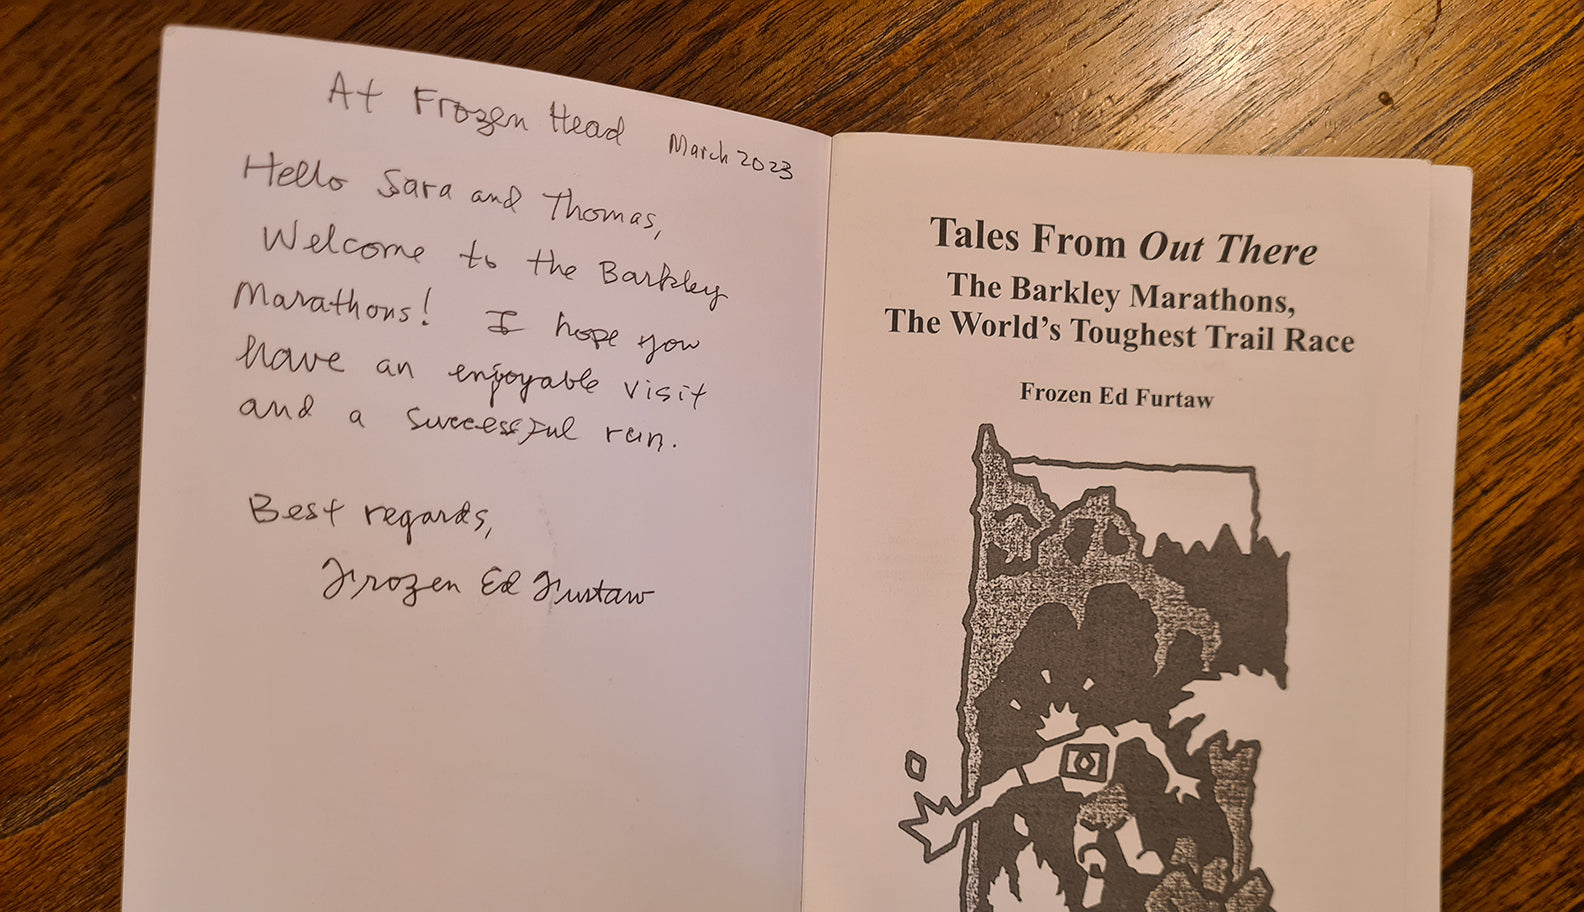 At Frozen Head
March 2023
Hello Sara and Thomas,
Welcome to the Barkley
Marathons! I hope you
have an enjoyable visit
and a successful run.
Best regards,
Frozen Ed Furtaw
Tales From Out There
The Barkley Marathons,
The World's Toughest Trail Race
Frozen Ed Furtaw